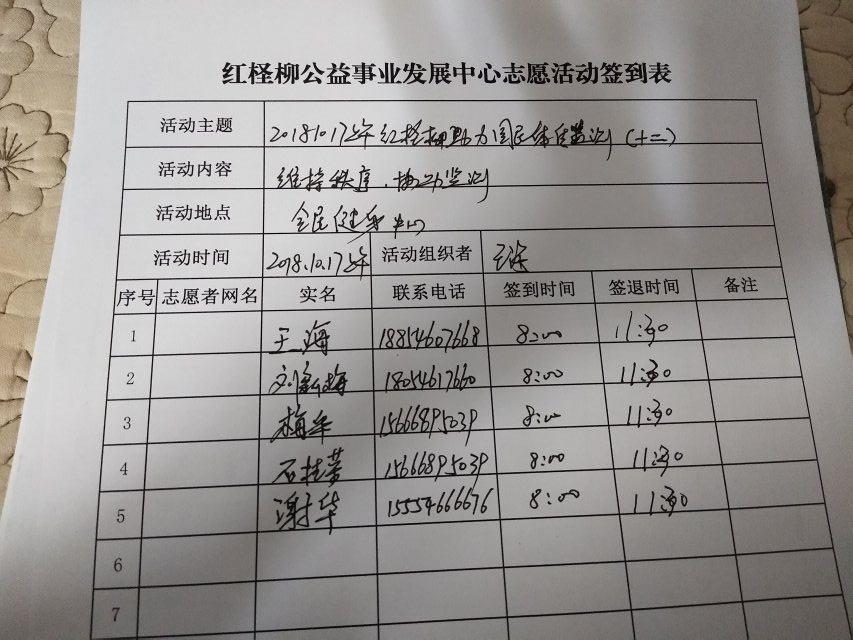 红柽柳公益事业发展中心志愿活动签到表
活动主题 2018.10.17上午红柽柳助力国民体质监测(十二)
活动内容 维持秩序、协助监测
活动地点 全民健身中心
活动时间 2018.10.17上午 活动组织者 王海
序号 志愿者网名 实名 联系电话 签到时间 签退时间 备注
1 王海 18814607668 8:00 11:30
2 刘 梅 18054617660 8:00 11:30
3 梅 15666895039 8:00 11:30
4 石桂荣 15666895039 8:00 11:30
5 谢华 15554666676 8:00 11:30
6
7